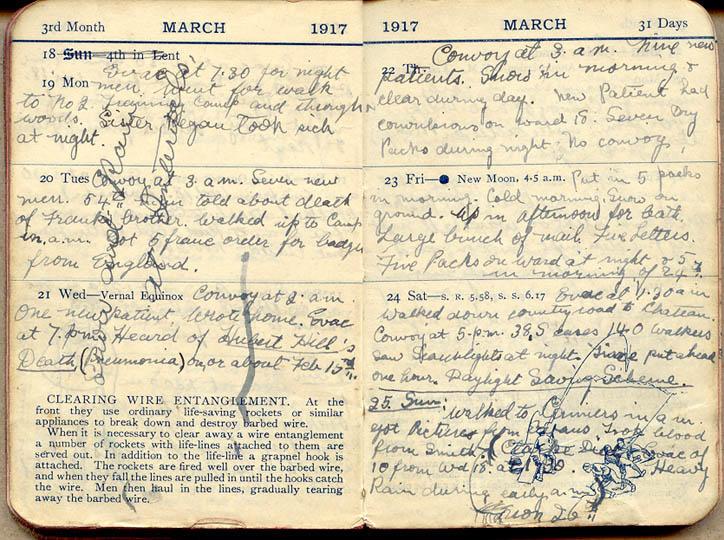 3rd Month MARCH 1917
18 Sun—4th in Lent
Evac at 7.30 for night
19 Mon men. Went for walk
to No 2. Training Camp and through
woods. Sister Regan took sick
at night.
20 Tues Convoy at 3. a.m. Seven new
men. 54 told about death
of Franks brother. Walked up to Camp
in a.m. Got 5 franc order for badge
from England.
21 Wed—Vernal Equinox Convoy at 2. a.m.
One new patient. Wrote home. Evac
at 7. p.m. Heard of Hubert Hill's
Death (Pneumonia) on, or about Feb 15th
CLEARING WIRE ENTANGLEMENT. At the
front they use ordinary life-saving rockets or similar
appliances to break down and destroy barbed wire.
When it is necessary to clear away a wire entanglement
a number of rockets with life-lines attached to them are
served out. In addition to the life-line a grapnel hook is
attached. The rockets are fired well over the barbed wire,
and when they fall the lines are pulled in until the hooks catch
the wire. Men then haul in the lines, gradually tearing
away the barbed wire.
1917 MARCH 31 Days
Convoy at 3. a.m. Nine new
22 Th. patients. Snow in morning &
clear during day. New Patient had
convulsions on ward 18. Seven Dry
Packs during night. No convoy.
23 Fri— New Moon, 4.5 a.m. Put in 5 packs
in morning. Cold morning. Snow on
ground. Up in afternoon for bath.
Large bunch of mail. Five Letters.
Five Packs on ward at night & 5
in morning of 24th.
24 Sat—S. R. 5.58, S. S. 6.17 Evac at 1.30 a.m
Walked down country road to Chateau.
Convoy at 5-p.m. 38 S cases 140 walkers
saw Searchlights at night. Time put ahead
one hour. Daylight Saving Scheme.
25. Sun. Walked to in a.m.
got Pictures from Took blood
from Smith. Evac of
10 from Wd 18. at Heavy
Rain during early a.m.
26th